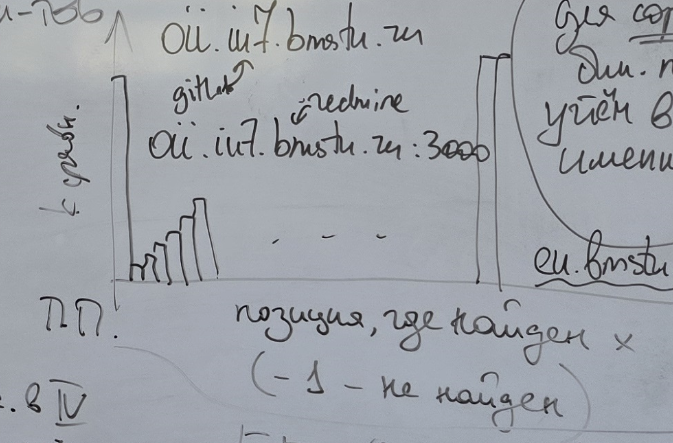 oii.iu7.bmstu.ru
gitlab
redmine
oii.iu7.bmstu.ru:3000
к сравн.
П.П.
позиция, где найден x
(-1 - не найден)
. в IV
Для
учён в
имени
eu.bmstu